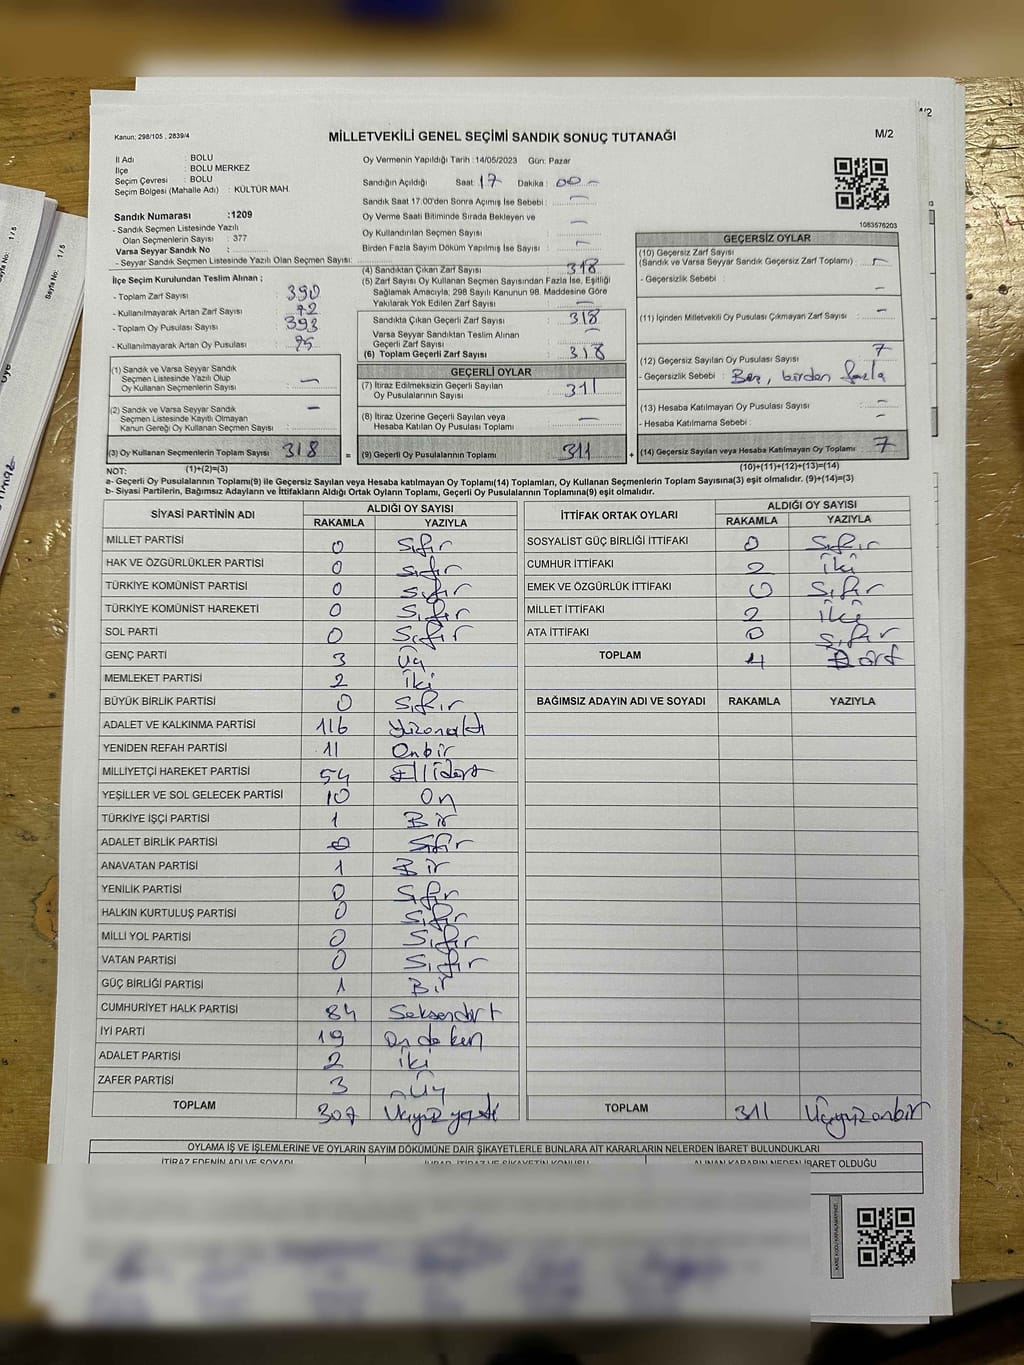 Kanun; 298/105 , 2839/4
MİLLETVEKİLİ GENEL SEÇİMİ SANDIK SONUÇ TUTANAĞI
M/2
İl Adı : BOLU
İlçe : BOLU MERKEZ
Seçim Çevresi : BOLU
Seçim Bölgesi (Mahalle Adı) : KÜLTÜR MAH.
Oy Vermenin Yapıldığı Tarih : 14/05/2023 Gün: Pazar
Sandığın Açıldığı Saat: 17 Dakika : 00 -
Sandık Saat 17:00'den Sonra Açımış İse Sebebi : -
Oy Verme Saati Bitiminde Sırada Bekleyen ve
Oy Kullandırılan Seçmen Sayısı : -
Birden Fazla Sayım Döküm Yapılmış İse Sayısı : -
1083576203
Sandık Numarası :1209
- Sandık Seçmen Listesinde Yazılı
Olan Seçmenlerin Sayısı : 377
Varsa Seyyar Sandık No :
- Seyyar Sandık Seçmen Listesinde Yazılı Olan Seçmen Sayısı:
İlçe Seçim Kurulundan Teslim Alınan ;
- Toplam Zarf Sayısı : 390
- Kullanılmayarak Artan Zarf Sayısı : 72
- Toplam Oy Pusulası Sayısı : 393
- Kullanılmayarak Artan Oy Pusulası : 75
(1) Sandık ve Varsa Seyyar Sandık
Seçmen Listesinde Yazılı Olup
Oy Kullanan Seçmenlerin Sayısı : -
(2) Sandık ve Varsa Seyyar Sandık
Seçmen Listesinde Kayıtlı Olmayan
Kanun Gereği Oy Kullanan Seçmen Sayısı : -
(3) Oy Kullanan Seçmenlerin Toplam Sayısı : 318 =
(4) Sandıktan Çıkan Zarf Sayısı : 318
(5) Zarf Sayısı Oy Kullanan Seçmen Sayısından Fazla İse, Eşitliği
Sağlamak Amacıyla; 298 Sayılı Kanunun 98. Maddesine Göre
Yakılarak Yok Edilen Zarf Sayısı : -
Sandıkta Çıkan Geçerli Zarf Sayısı : 318
Varsa Seyyar Sandıktan Teslim Alınan
Geçerli Zarf Sayısı : -
(6) Toplam Geçerli Zarf Sayısı : 318
GEÇERLİ OYLAR
(7) İtiraz Edilmeksizin Geçerli Sayılan
Oy Pusulalarının Sayısı : 311
(8) İtiraz Üzerine Geçerli Sayılan veya
Hesaba Katılan Oy Pusulası Toplamı : -
(9) Geçerli Oy Pusulalarının Toplamı : 311 +
GEÇERSİZ OYLAR
(10) Geçersiz Zarf Sayısı
(Sandık ve Varsa Seyyar Sandık Geçersiz Zarf Toplamı) : -
- Geçersizlik Sebebi : -
(11) İçinden Milletvekili Oy Pusulası Çıkmayan Zarf Sayısı : -
(12) Geçersiz Sayılan Oy Pusulası Sayısı : 7
- Geçersizlik Sebebi : Boş, birden fazla
(13) Hesaba Katılmayan Oy Pusulası Sayısı : -
- Hesaba Katılmama Sebebi : -
(14) Geçersiz Sayılan veya Hesaba Katılmayan Oy Toplamı : 7
NOT: (1)+(2)=(3) (10)+(11)+(12)+(13)=(14)
a- Geçerli Oy Pusulalarının Toplamı(9) ile Geçersiz Sayılan veya Hesaba katılmayan Oy Toplamı(14) Toplamları, Oy Kullanan Seçmenlerin Toplam Sayısına(3) eşit olmalıdır. (9)+(14)=(3)
b- Siyasi Partilerin, Bağımsız Adayların ve İttifakların Aldığı Ortak Oyların Toplamı, Geçerli Oy Pusulalarının Toplamına(9) eşit olmalıdır.
SİYASİ PARTİNİN ADI ALDIĞI OY SAYISI
RAKAMLA YAZIYLA
MİLLET PARTİSİ 0 Sıfır
HAK VE ÖZGÜRLÜKLER PARTİSİ 0 Sıfır
TÜRKİYE KOMÜNİST PARTİSİ 0 Sıfır
TÜRKİYE KOMÜNİST HAREKETİ 0 Sıfır
SOL PARTİ 0 Sıfır
GENÇ PARTİ 3 Üç
MEMLEKET PARTİSİ 2 İki
BÜYÜK BİRLİK PARTİSİ 0 Sıfır
ADALET VE KALKINMA PARTİSİ 116 Yüzonaltı
YENİDEN REFAH PARTİSİ 11 Onbir
MİLLİYETÇİ HAREKET PARTİSİ 54 Ellidört
YEŞİLLER VE SOL GELECEK PARTİSİ 10 On
TÜRKİYE İŞÇİ PARTİSİ 1 Bir
ADALET BİRLİK PARTİSİ 0 Sıfır
ANAVATAN PARTİSİ 1 Bir
YENİLİK PARTİSİ 0 Sıfır
HALKIN KURTULUŞ PARTİSİ 0 Sıfır
MİLLİ YOL PARTİSİ 0 Sıfır
VATAN PARTİSİ 0 Sıfır
GÜÇ BİRLİĞİ PARTİSİ 1 Bir
CUMHURİYET HALK PARTİSİ 84 Seksendört
İYİ PARTİ 19 Ondokuz
ADALET PARTİSİ 2 İki
ZAFER PARTİSİ 3 Üç
TOPLAM 307 Üçyüzyedi
İTTİFAK ORTAK OYLARI ALDIĞI OY SAYISI
RAKAMLA YAZIYLA
SOSYALİST GÜÇ BİRLİĞİ İTTİFAKI 0 Sıfır
CUMHUR İTTİFAKI 2 İki
EMEK VE ÖZGÜRLÜK İTTİFAKI 0 Sıfır
MİLLET İTTİFAKI 2 İki
ATA İTTİFAKI 0 Sıfır
TOPLAM 4 Dört
BAĞIMSIZ ADAYIN ADI VE SOYADI RAKAMLA YAZIYLA
TOPLAM 311 Üçyüzonbir
OYLAMA İŞ VE İŞLEMLERİNE VE OYLARIN SAYIM DÖKÜMÜNE DAİR ŞİKAYETLERLE BUNLARA AİT KARARLARIN NELERDEN İBARET BULUNDUKLARI
İTİRAZ EDENİN ADI VE SOYADI İHBAR, İTİRAZ VE ŞİKAYETİN KONUSU ALINAN KARARIN NEDEN İBARET OLDUĞU